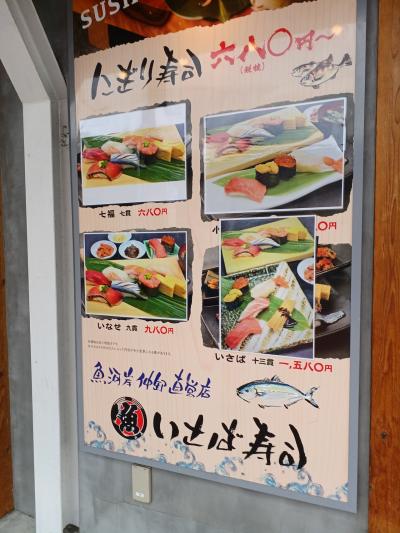 SUSH
にぎり寿司
六八〇円〜
(税抜)
七福 七貫 六八〇円
いなせ 九貫 九八〇円
いさば 十三貫 一,五八〇円
魚河岸仲卸直営店
魚 いさば寿司